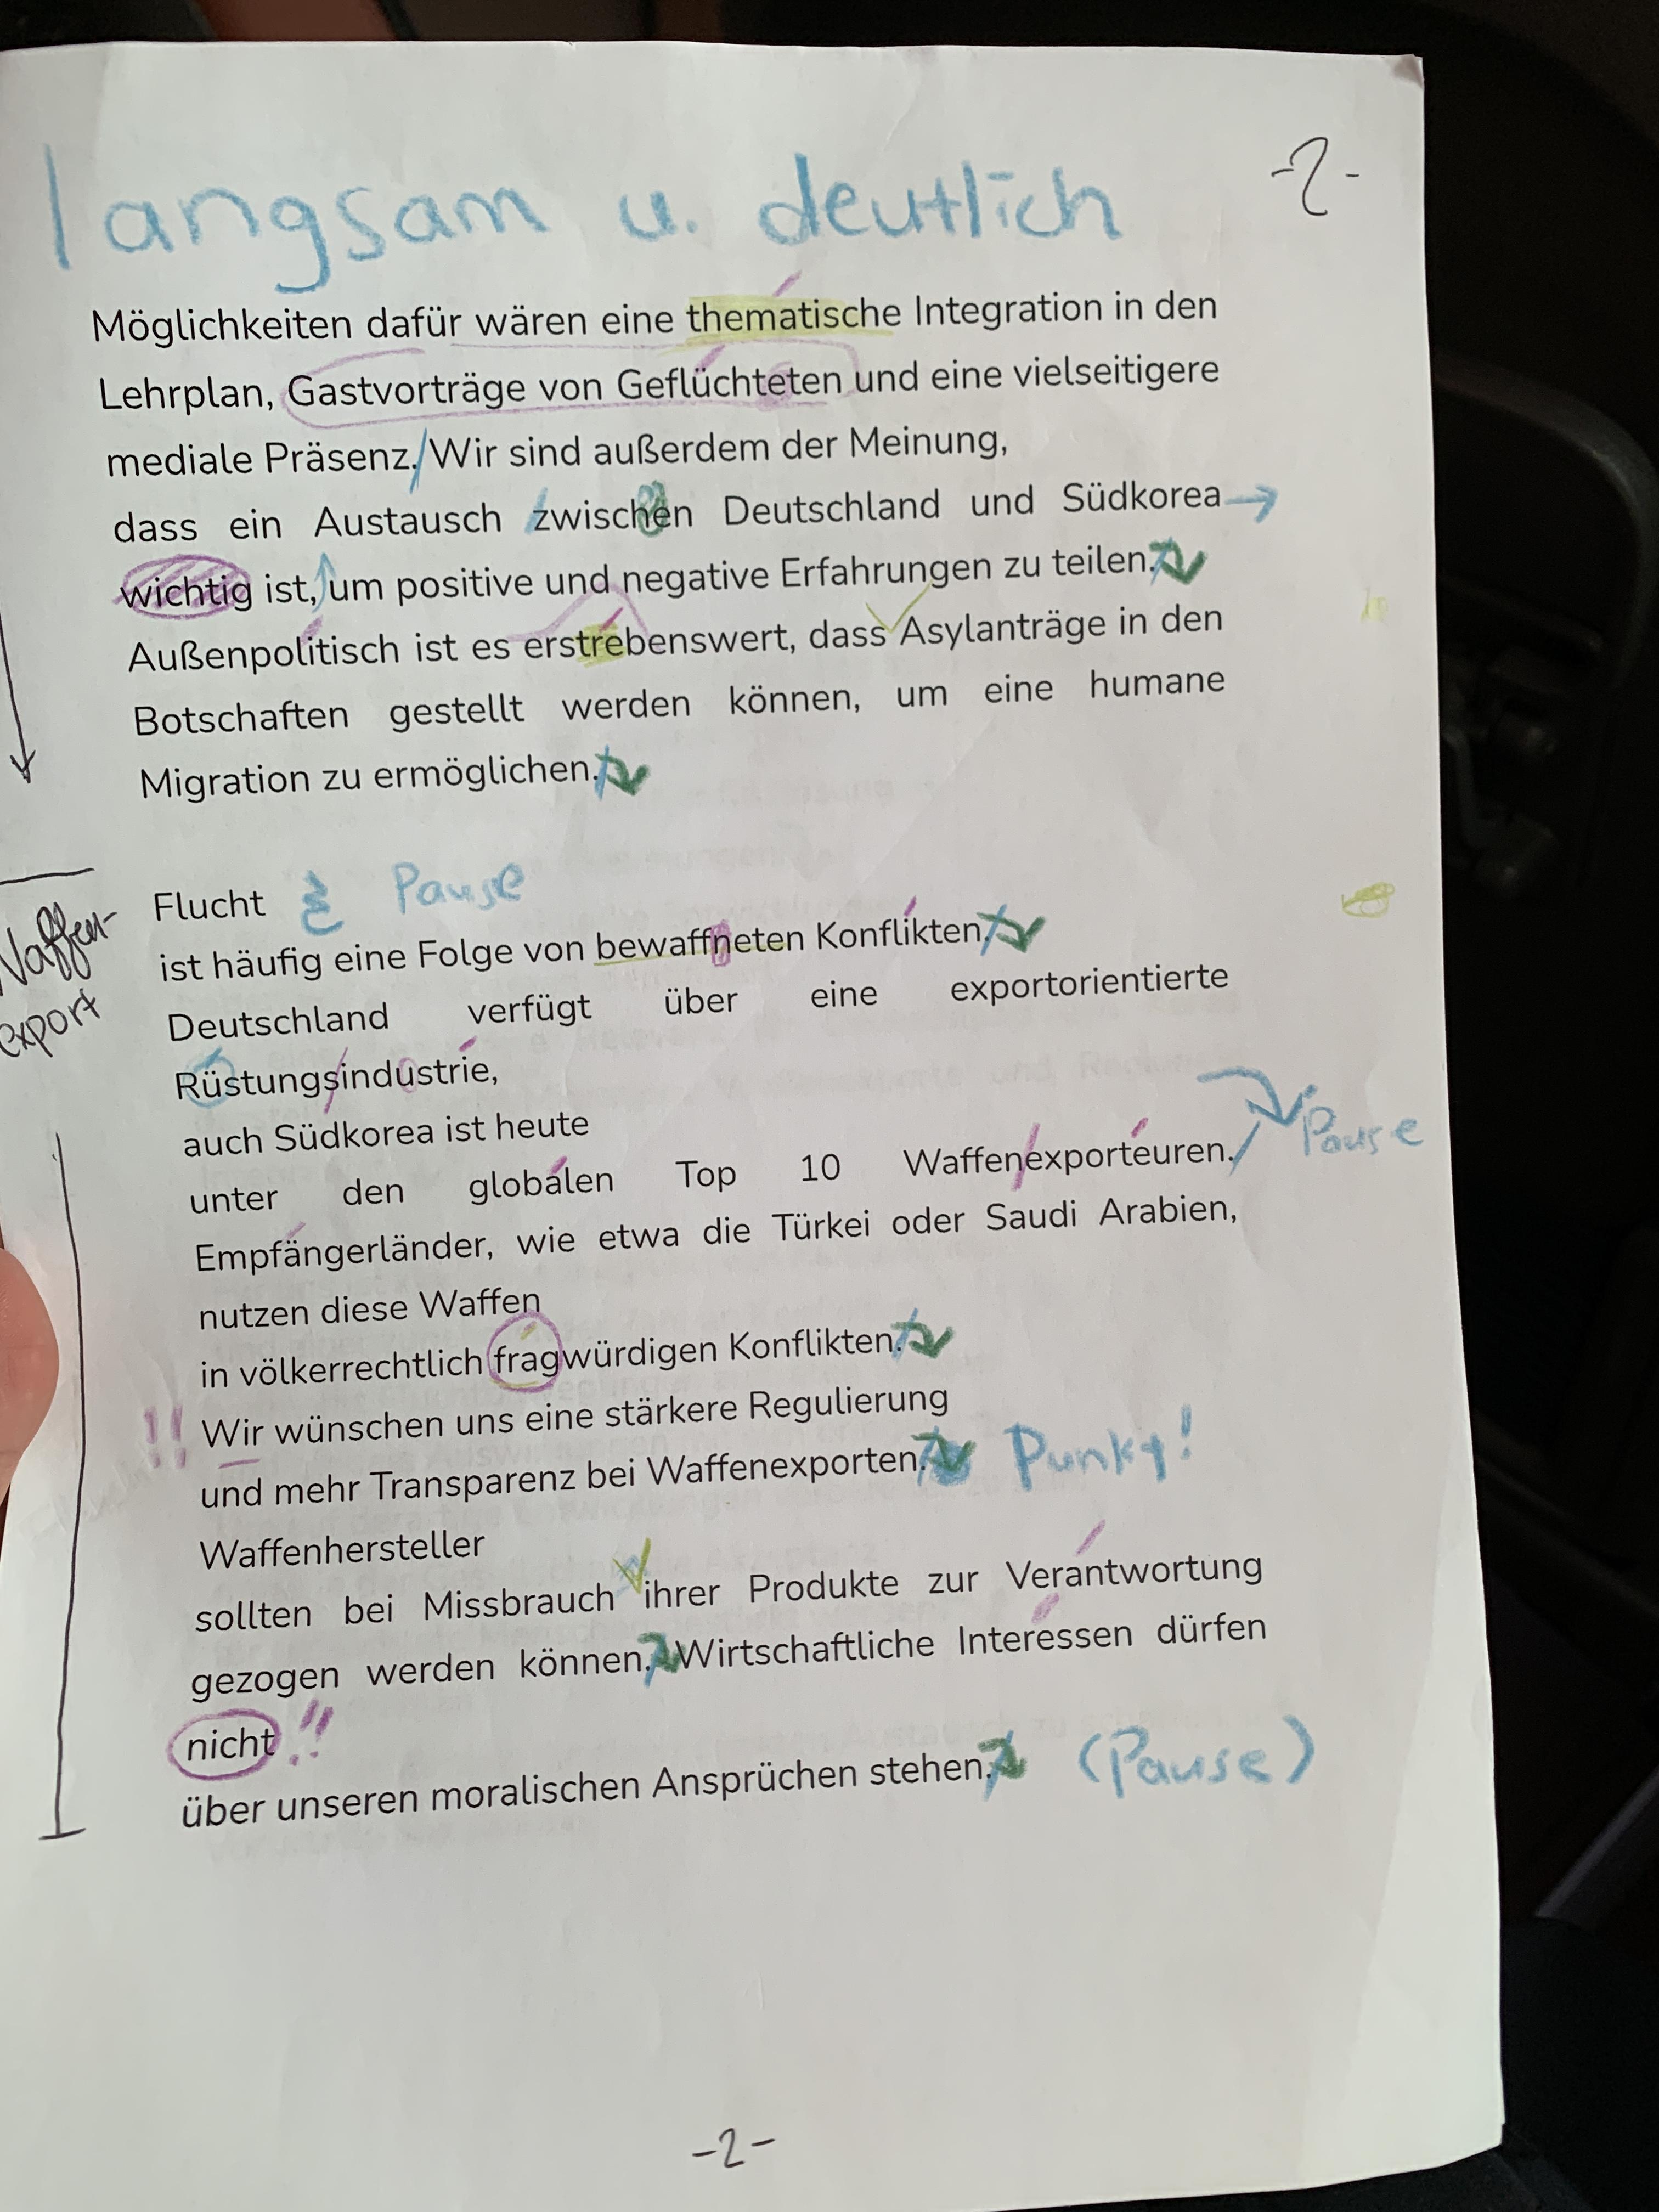 -2-
langsam u. deutlich
Möglichkeiten dafür wären eine thematische Integration in den
Lehrplan, Gastvorträge von Geflüchteten und eine vielseitigere
mediale Präsenz. Wir sind außerdem der Meinung,
dass ein Austausch zwischen Deutschland und Südkorea
wichtig ist, um positive und negative Erfahrungen zu teilen.
Außenpolitisch ist es erstrebenswert, dass Asylanträge in den
Botschaften gestellt werden können, um eine humane
Migration zu ermöglichen.
Flucht Pause
ist häufig eine Folge von bewaffneten Konflikten.
Waffen-
export
Deutschland verfügt über eine exportorientierte
Rüstungsindustrie,
auch Südkorea ist heute
unter den globalen Top 10 Waffenexporteuren. Pause
Empfängerländer, wie etwa die Türkei oder Saudi Arabien,
nutzen diese Waffen
in völkerrechtlich fragwürdigen Konflikten.
!! Wir wünschen uns eine stärkere Regulierung
und mehr Transparenz bei Waffenexporten. Punkt!
Waffenhersteller
sollten bei Missbrauch ihrer Produkte zur Verantwortung
gezogen werden können. Wirtschaftliche Interessen dürfen
nicht !!
über unseren moralischen Ansprüchen stehen. (Pause)
-2-